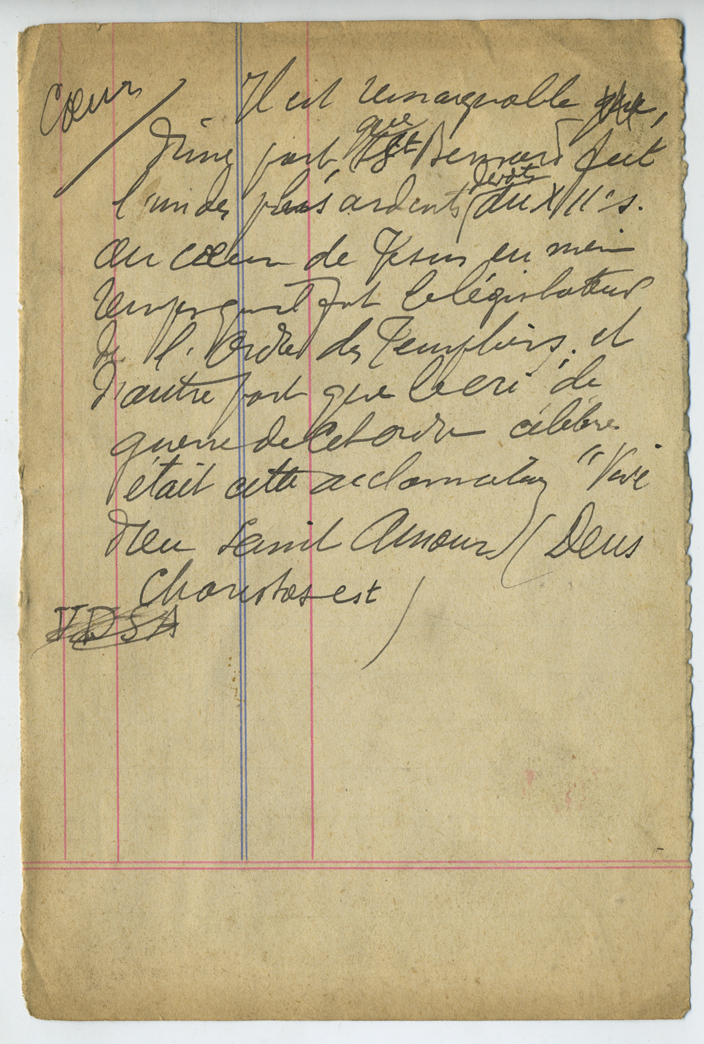 Cœur
Il est remarquable que,
que
d'une part St Bernard fut
dévots
l'un des plus ardents du XIIe s.
au cœur de Jésus en même
temps qu'il fut le législateur
de l'Ordre des Templiers, et
d'autre part que le cri de
guerre de cet ordre célèbre
était cette acclamation "Vive
Dieu Saint Amour" (Deus
Charitas est)
VDSA